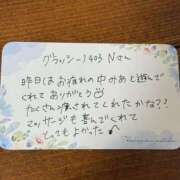 グランシー1403 Nさん
昨日はお疲れの中みあと遊んで
くれてありがとう
たくさん癒されてくれたかな??
マッサージも喜んでくれて
とってもよかった